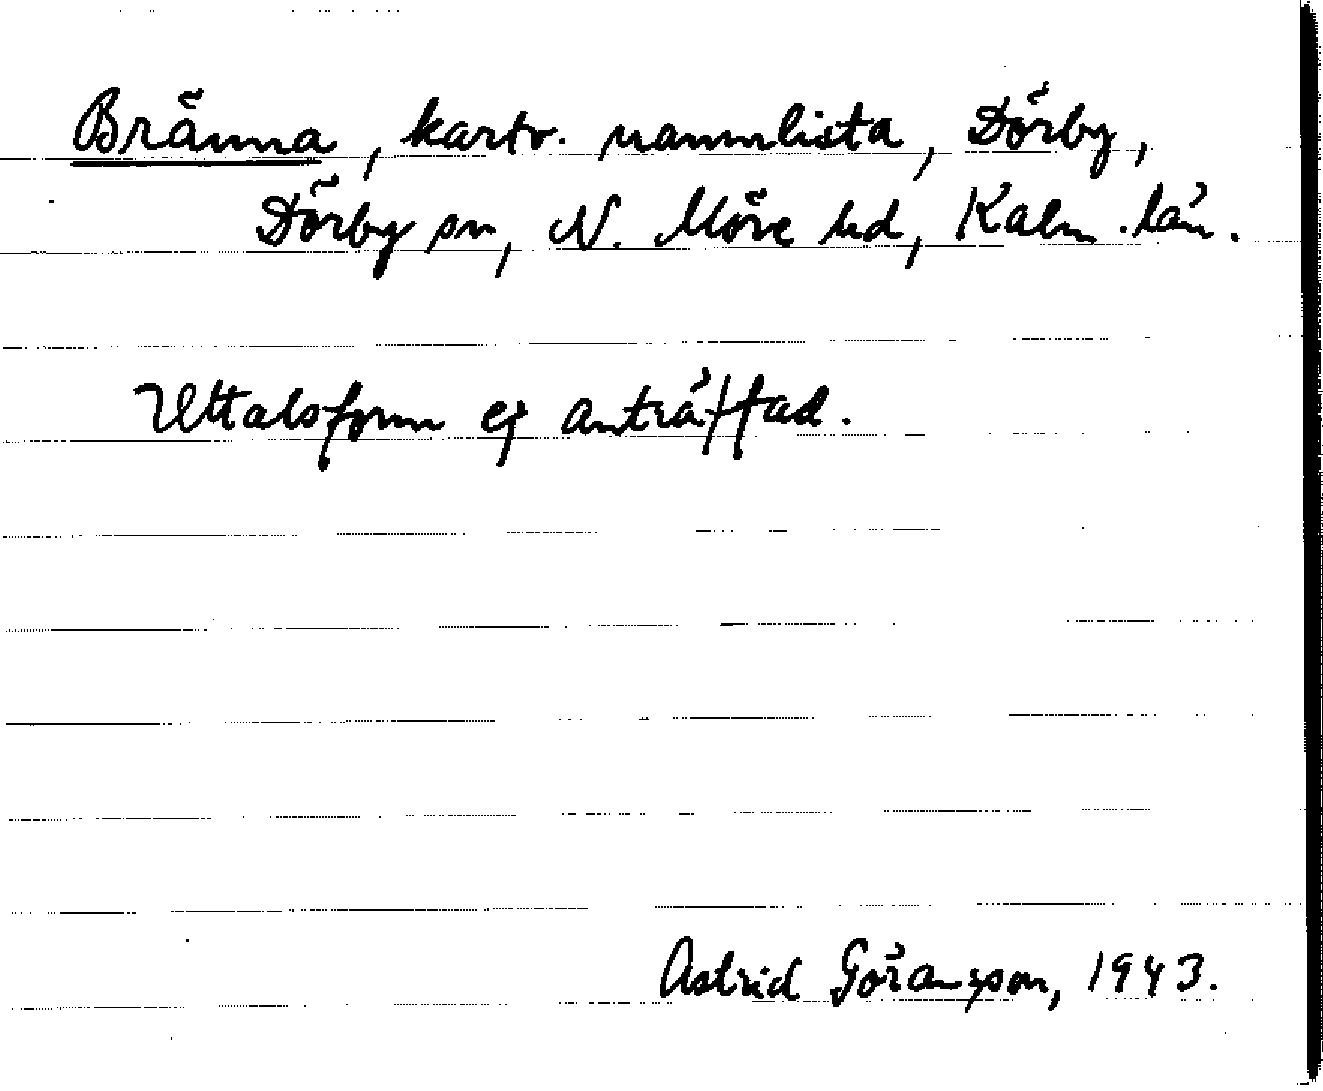 Bränna, kartv. namnlista, Dörby,
Dörby sn, N. Möre hd, Kalm. län.
Uttalsform ej anträffad.
Astrid Göransson, 1943.